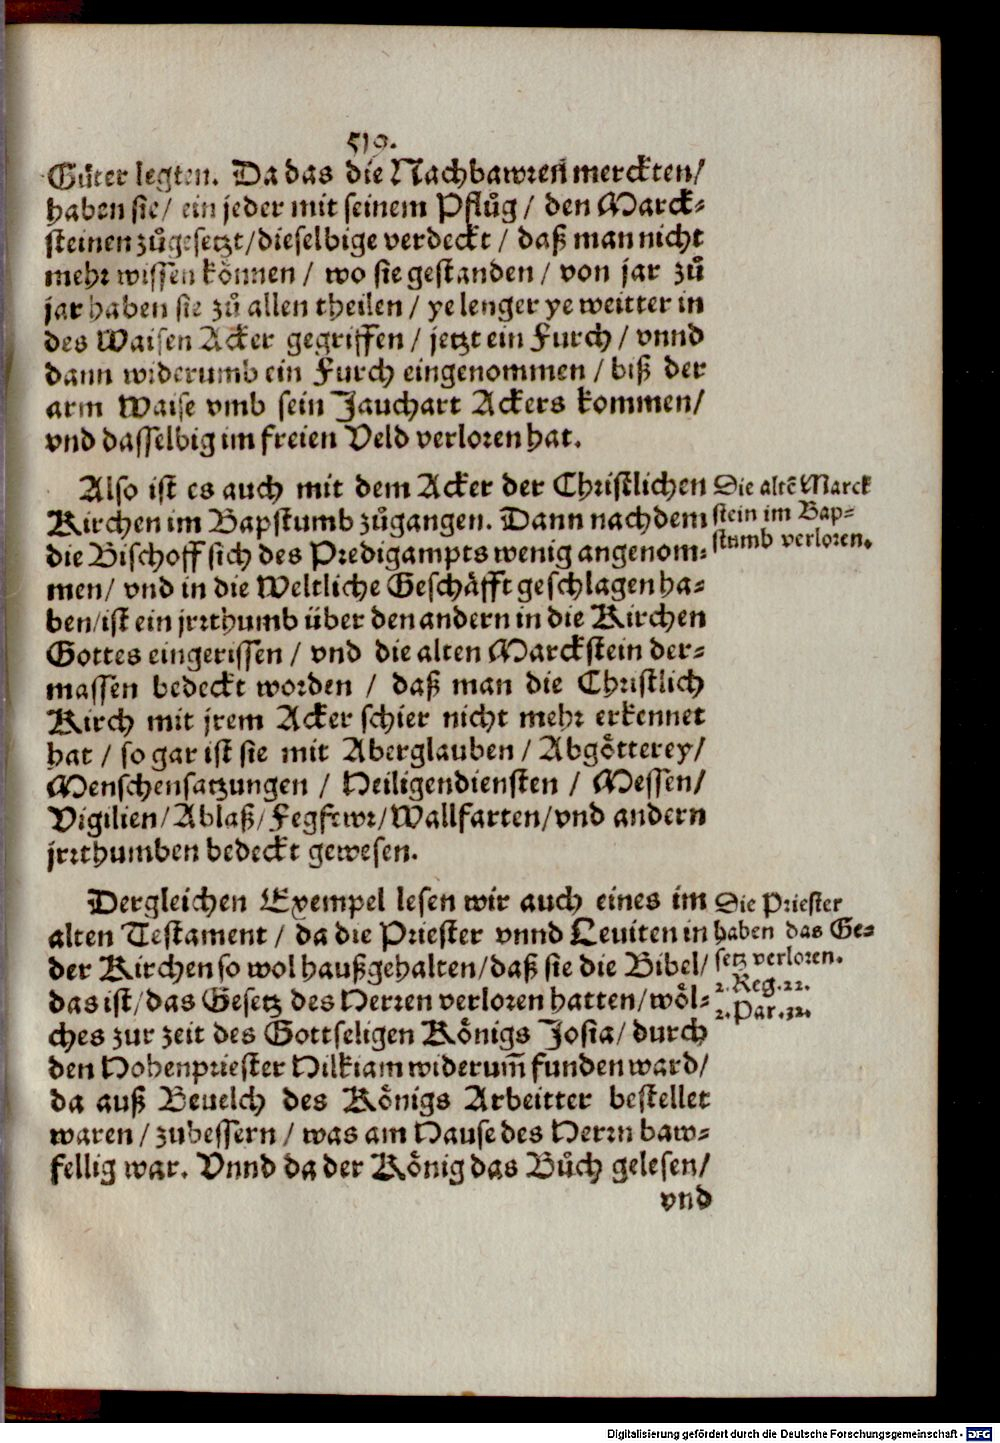 519.
Gůter legten. Da das die Nachbawren merckten/
haben sie/ ein jeder mit seinem Pflůg / den Marck-
steinen zůgesetzt/dieselbige verdeckt / daß man nicht
mehr wissen können / wo sie gestanden / von jar zů
jar haben sie zů allen theilen / ye lenger ye weitter in
des Waisen Acker gegriffen / jetzt ein Furch / vnnd
dann widerumb ein Furch eingenommen / biß der
arm Waise vmb sein Jauchart Ackers kommen/
vnd dasselbig im freien Veld verloren hat.
Also ist es auch mit dem Acker der Christlichen
Kirchen im Bapstumb zůgangen. Dann nach dem
die Bischoff sich des Predigampts wenig angenom-
men/ vnd in die Weltliche Geschäfft geschlagen ha-
ben/ist ein jrrthumb über den andern in die Kirchen
Gottes eingerissen / vnd die alten Marckstein der-
massen bedeckt worden / daß man die Christlich
Kirch mit jrem Acker schier nicht mehr erkennet
hat / so gar ist sie mit Aberglauben / Abgötterey/
Menschensatzungen / Heiligendiensten / Messen/
Vigilien/Ablaß/Fegfewr/Wallfarten/vnd andern
jrrthumben bedeckt gewesen.
Die altẽ Marck
stein im Bap-
stumb verloren.
Dergleichen Exempel lesen wir auch eines im
alten Testament / da die Priester vnnd Leuiten in
der Kirchen so wol haußgehalten/daß sie die Bibel/
das ist/das Gesetz des Herren verloren hatten/wöl-
ches zur zeit des Gottseligen Königs Josia/durch
den Hohenpriester Hilkiam widerum̃ funden ward/
da auß Beuelch des Königs Arbeitter bestellet
waren / zubessern / was am Hause des Herrn baw-
fellig war. Vnnd da der König das Bůch gelesen/
vnd
Die Priester
haben das Ge-
setz verloren.
2.Reg.22.
2.Par.32.
Digitalisierung gefördert durch die Deutsche Forschungsgemeinschaft - DFG